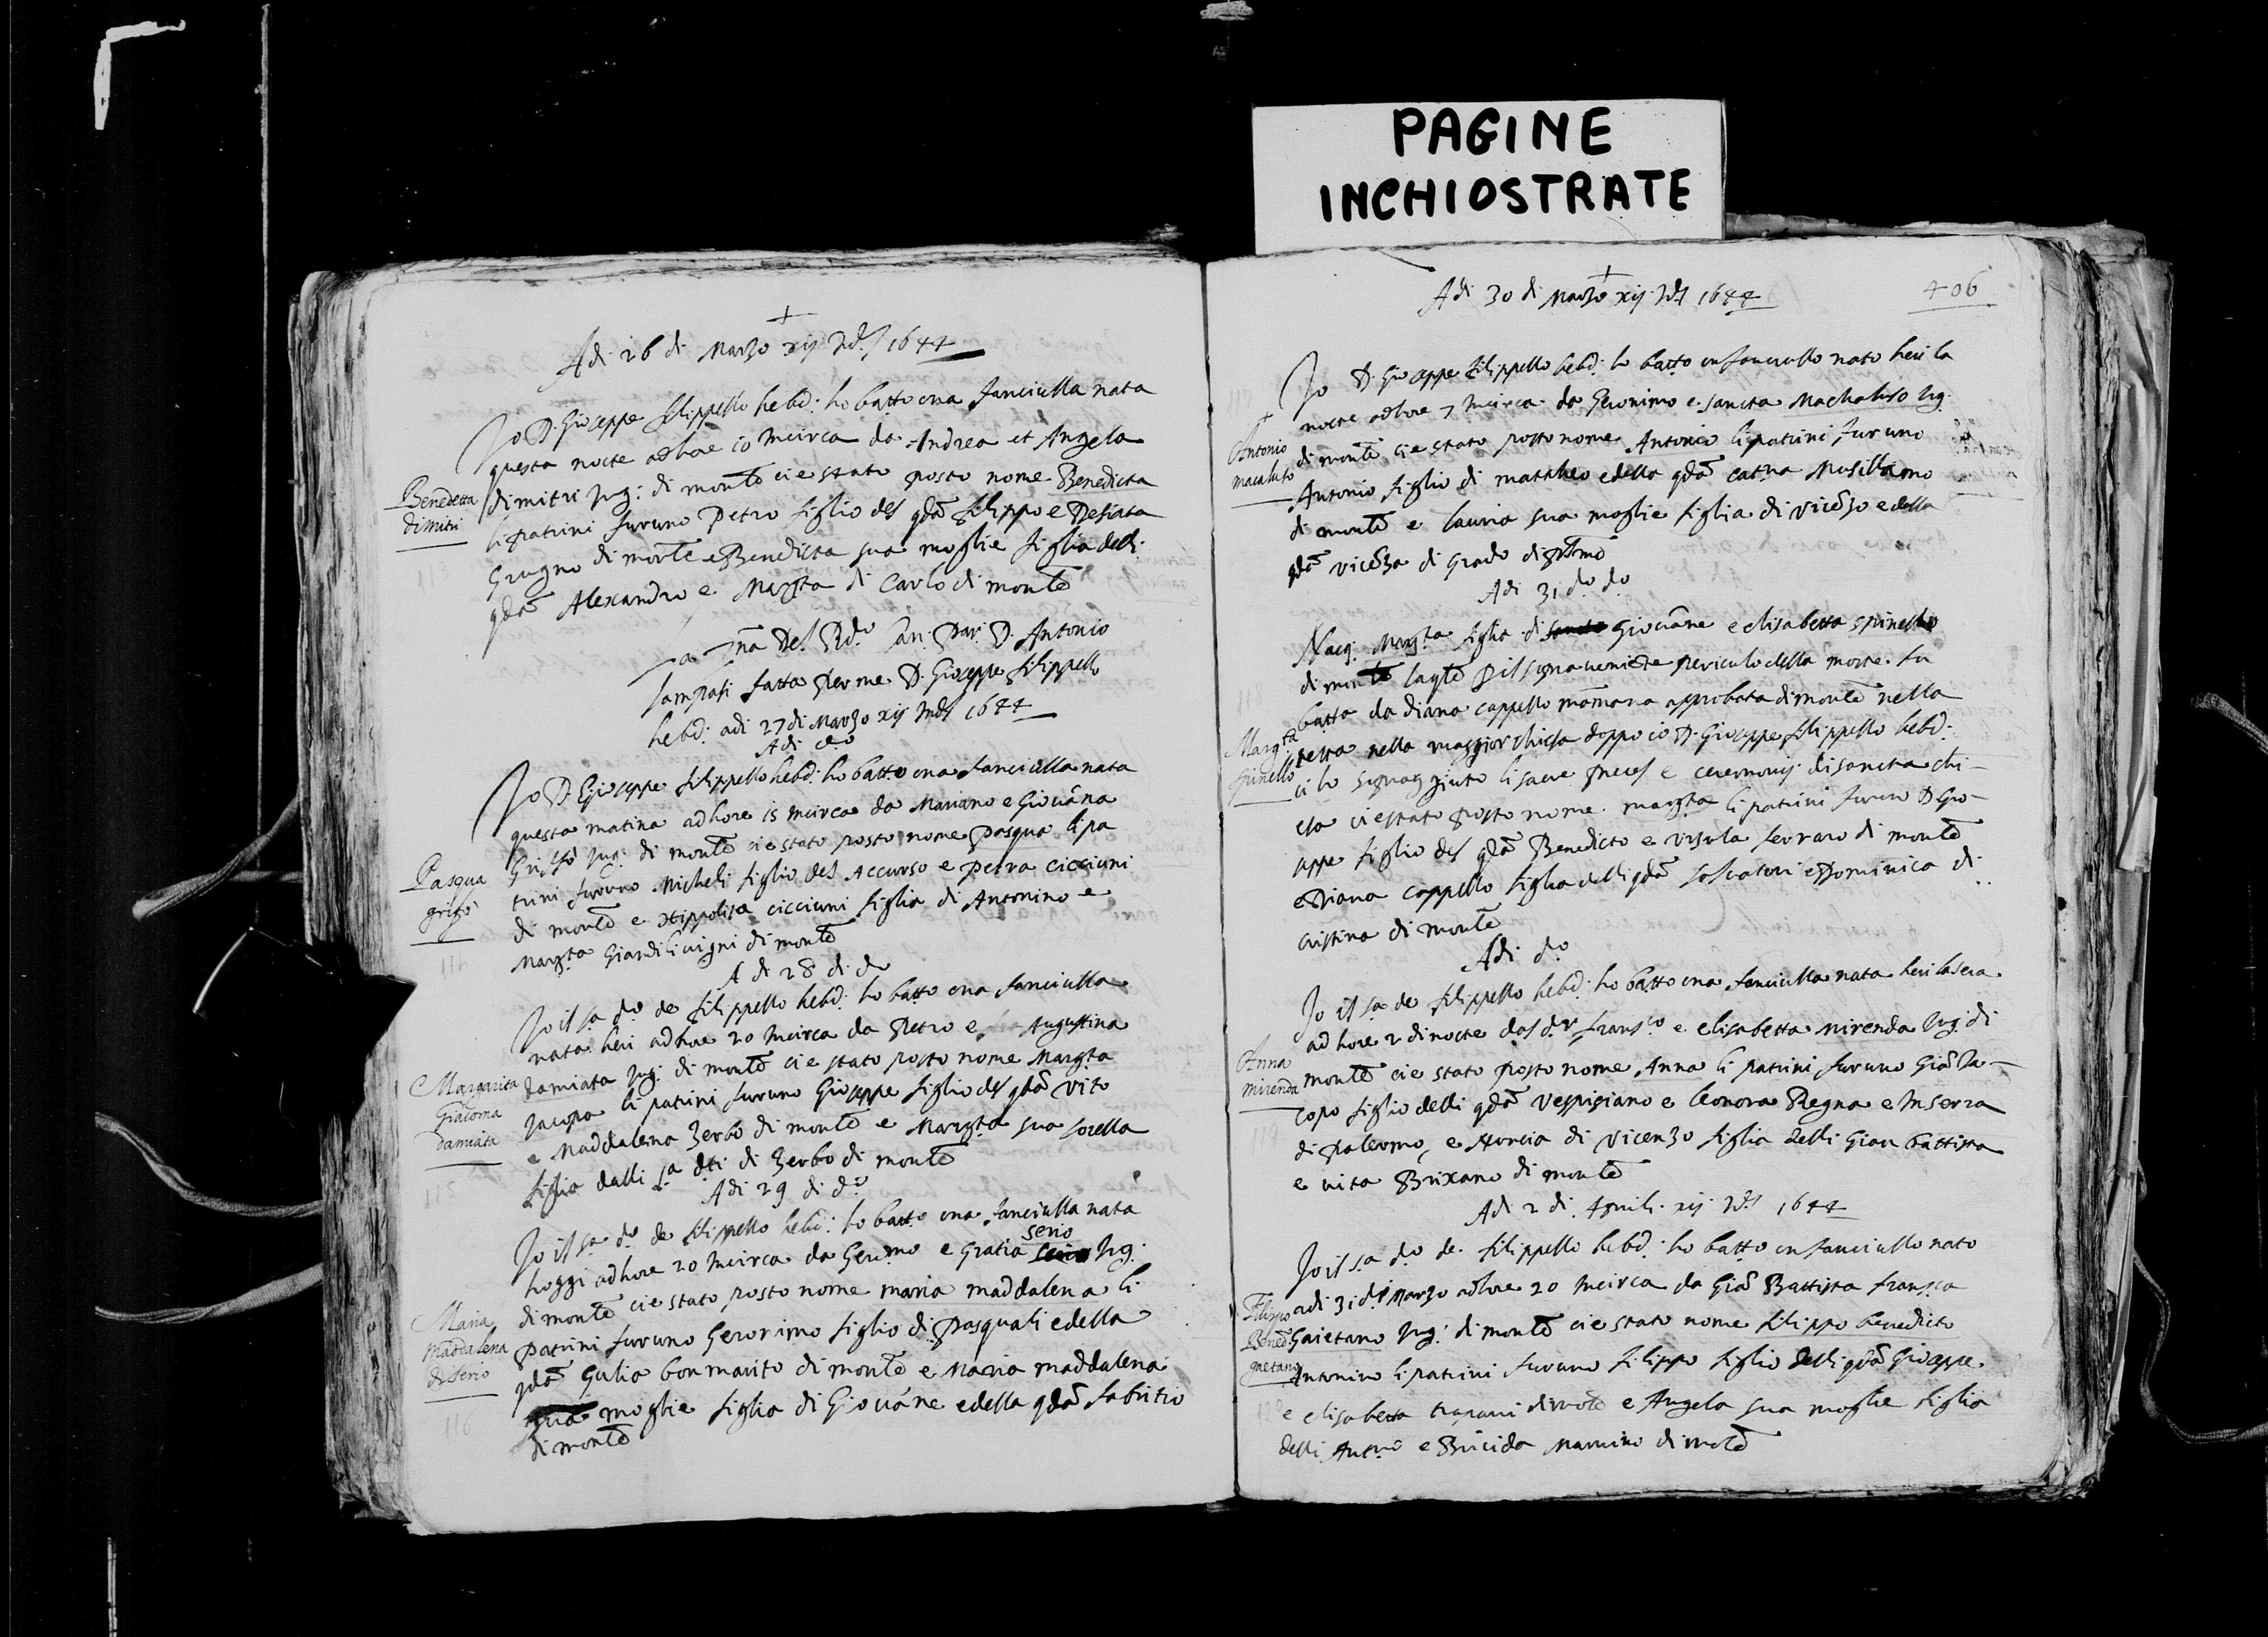 PAGINE
INCHIOSTRATE
Adi 26 di Marzo xij Ind. 1644
Jo D. Gioseppe filippello hebd: ho batto una fanciulla nata
questa nocte ad hore 10 incirca da Andrea et Angela
Benedetta
dimitri
dimitri Jug: di monte ci e stato posto nome Benedicta
li patrini furuno Petro figlio del qda filippo e Desiata
Grugno di monte e Benedicta sua moglie figlia delli
qda Alexandro e Margta di Carlo di monte
a del Rdo D. Antonio
fatta per me D. Gioseppe filippello
hebd: adi 27 di Marzo xij Ind 1644
Adi do
Jo D. Gioseppe filippello hebd: ho batto una fanciulla nata
questa matina ad hore 15 incirca da Mariano e Giovana
Pasqua
grifo
Grifo Jug: di monte ci e stato posto nome pasqua li pa
trini furuno Micheli figlio del Accurso e petra cicciuni
di monte e Hippolita cicciuni figlia di Antonino e
Margta di monte
Adi 28 di do
Jo il sa do de filippello hebd: ho batto una fanciulla
nata heri ad hore 20 incirca da Pietro e Augustina
Margarita
Giacoma
damiata
damiata Jug: di monte ci e stato posto nome Margta
Jacopa li patrini furuno Gioseppe figlio del qda vito
e Maddalena Zerbo di monte e Margta sua sorella
figlia delli sa dti di Zerbo di monte
Adi 29 di do
Jo il sa do de filippello hebd: ho batto una fanciulla nata
hoggi ad hore 20 incirca da Germo e Gratia serio Jug:
Maria
maddalena
di serio
di monte ci e stato posto nome maria maddalena li
patrini furuno Geronimo figlio di pasquali e della
qda Gulia bonmarito di monte e Maria maddalena
sua moglie figlia di Giovane e della qda fabritio
di monte
116
Adi 30 di Marzo xij Ind 1644
406
Jo D. Gioseppe filippello hebd: ho batto un fanciullo nato heri la
nocte ad hore 7 incirca da Geronimo e sancta Machaluso Jug:
Antonio
macaluso
di monte ci e stato posto nome Antonio li patrini furuno
Antonio figlio di mattheo e della qda catna Musillamo
di monte e lauria sua moglie figlia di vicezo e della
qda viceza di Grado di
Adi 31 do do
Nacq. Margta figlia di Giovane e elisabetta spinello
di monte la qle p il sopraveniete periculo della morte fu
batta da diana cappello mamana approbata di monte nella
Margta
spinello
testa nella maggior chiesa doppo io D. Gioseppe filippello hebd:
ci ho sopraggiunto li sacre preces e ceremonij di sancta chi-
esa ci e stato posto nome margta li patrini furuno D. Gio-
seppe figlio del qda Benedicto e ursula ferraro di monte
e Diana cappello figlia delli qda salvatori e Dominica di
cristina di monte
Adi do
Jo il sa de filippello hebd: ho batto una fanciulla nata heri la sera
ad hore 2 di nocte dal dr fransco e elisabetta mirenda Jug: di
Anna
mirenda
monte ci e stato posto nome Anna li patrini furuno Gioa Ja-
copo figlio delli qda vespisiano e leonora Regna e Inserra
di palermo e Antcia di vicenzo figlia delli Gioan battista
e vita Brixano di monte
Adi 2 di Aprili xij Ind 1644
Jo il sa do de filippello hebd: ho batto un fanciullo nato
adi 31 di Marzo ad hore 20 incirca da Gioa Battista fransca
Filippo
Bened.
gaetano
Gaietano Jug: di monte ci e stato nome filippo benedicto
Antonino li patrini furuno filippo figlio delli qda Gioseppe
e elisabetta trapani di mote e Angela sua moglie figlia
delli Antno e Bricida Marrino di mote